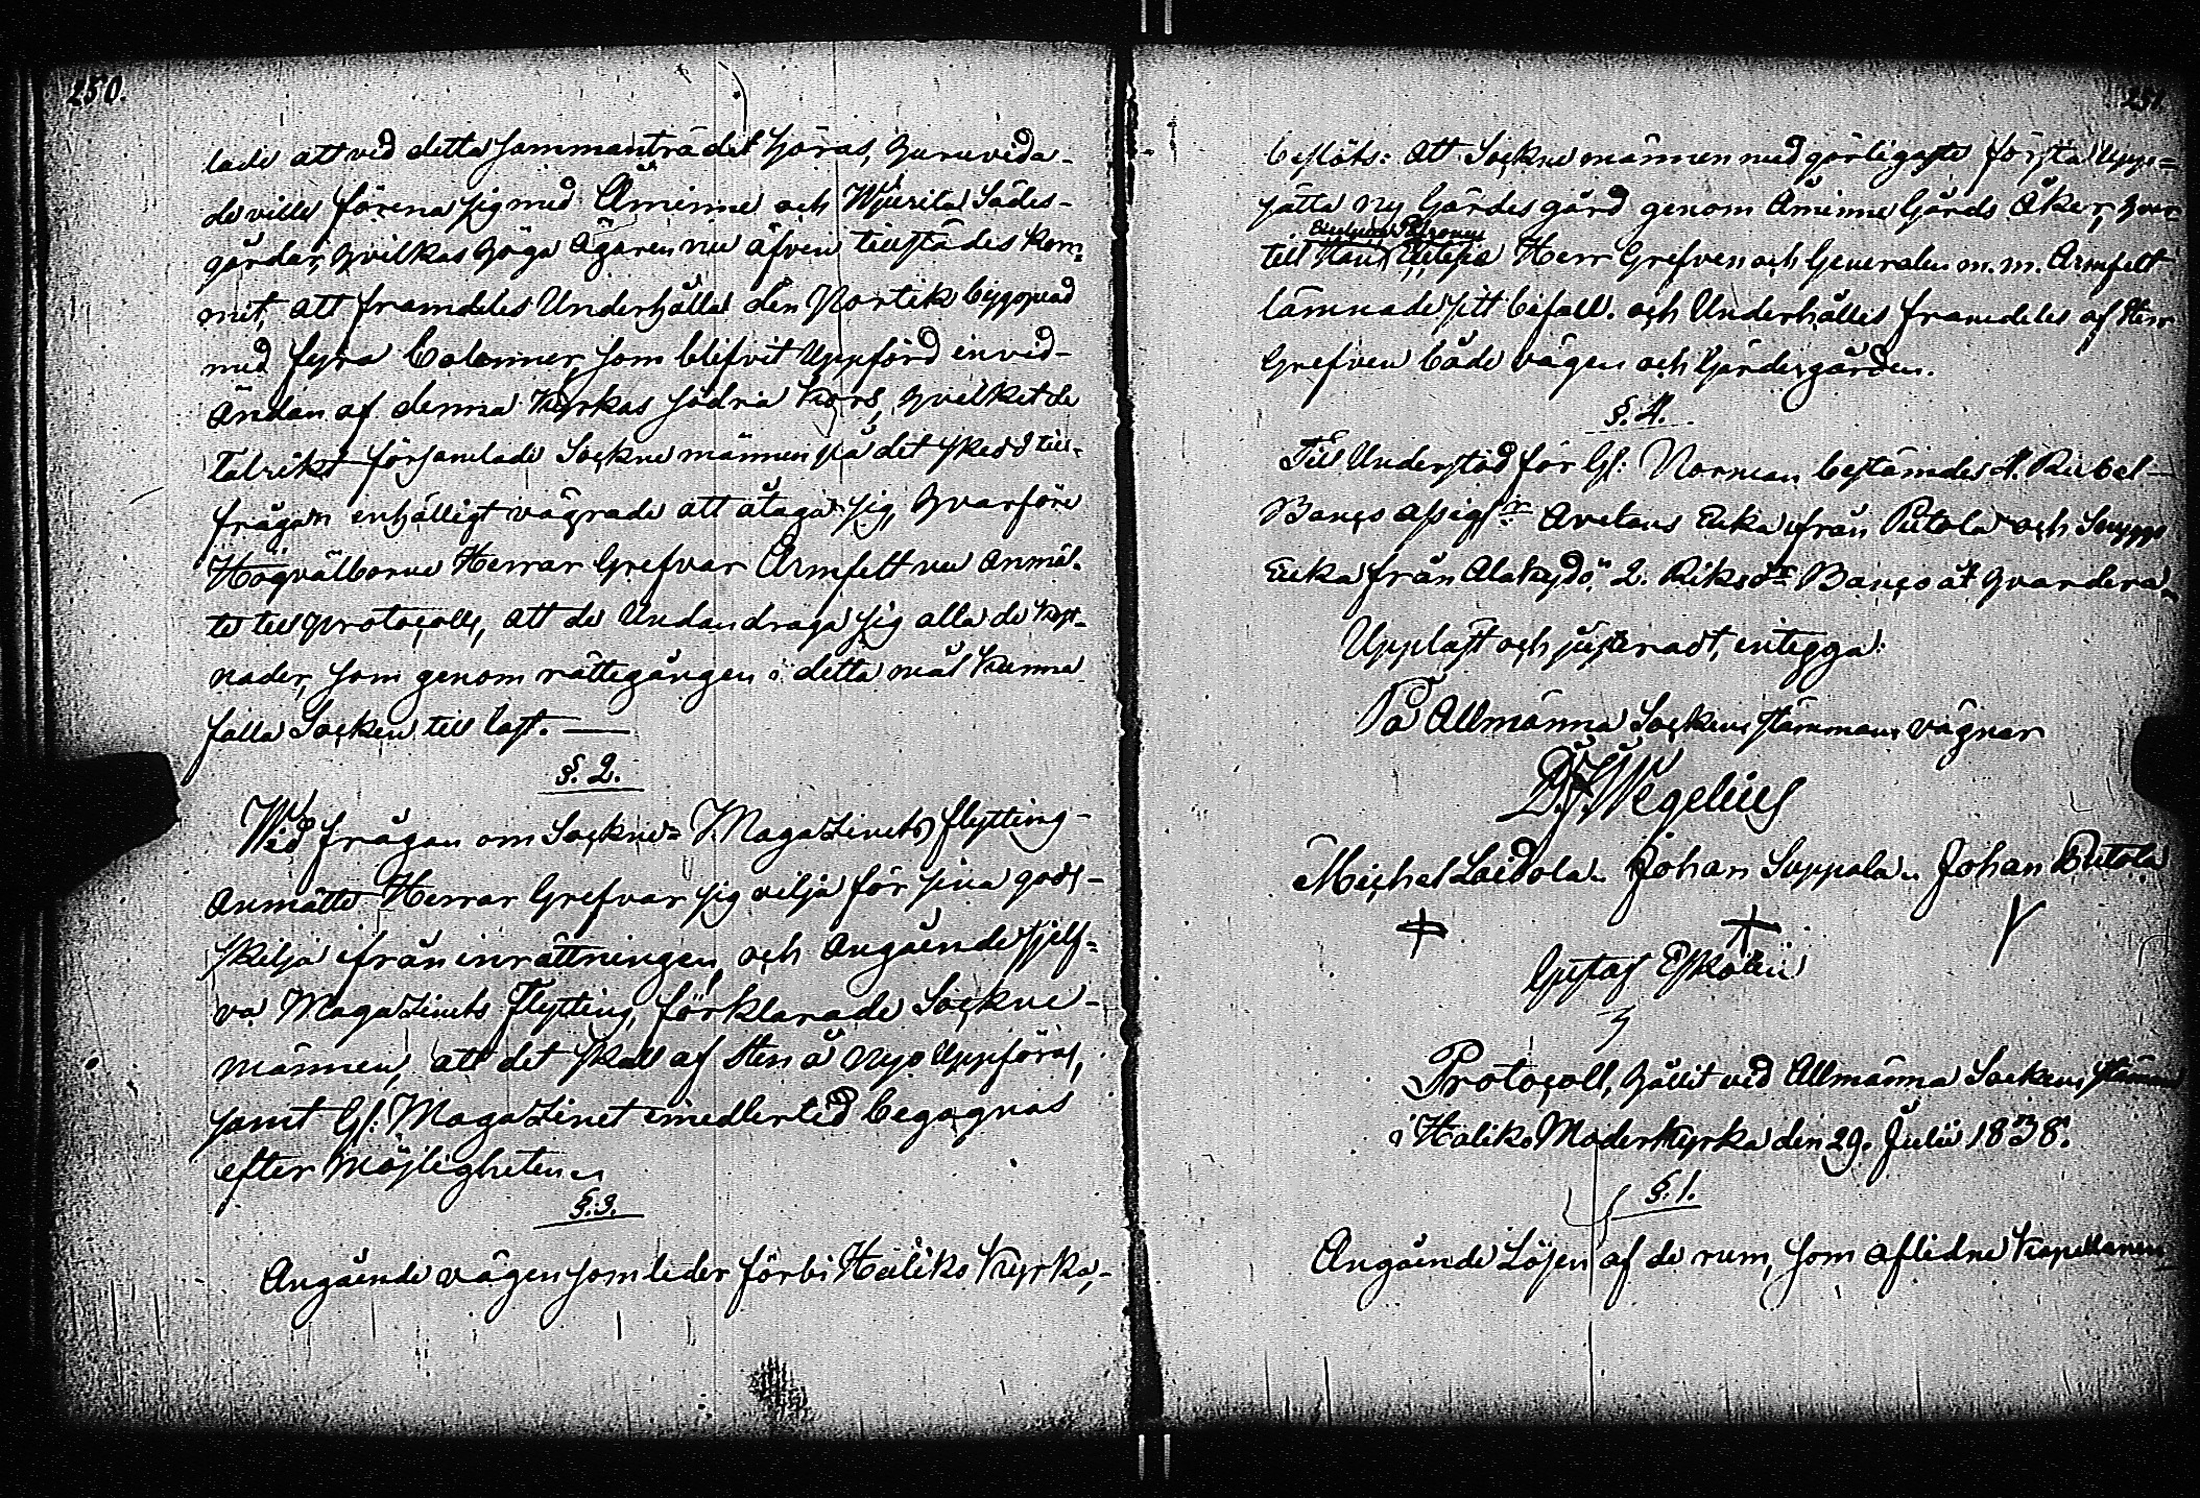 250.
lade att vid detta sammanträdet höras, huruvida
de ville förena sig med Åminne och Wiurila Sädes-
gårdar, hvilkas höga Ägaren nu äfven tillstädes kom-
mit, att framdeles Underhålla den Portik byggnad
med fyra Colonner, som blifvit Uppförd invid
Ändan af denna Kyrkas södra Kors, hvilket de
talrikt församlade Sockne männen på det skedd till-
frågan enhälligt vägrade att åtaga sig, hvarföre
Högvälborne Herrar Grefvar Armfelt nu anmäl-
te till protocoll, att de Undandraga sig alla de kost-
nader, som genom rättegången i detta mål kunna
falla Socken till last. —
§. 2.
Wid frågan om Sockne-Magazinets flytting
Anmälte Herrar Grefvar sig vilja för sina gods
skilja ifrån inrättningen, och Angående sjelf-
va Magazinets Flytting, förklarade Sockne-
männen, att det skall af Sten å nyo Uppföras,
samt Gl: Magazinet imedlertid begagnas
efter Möjligheten.
§. 3.
Angående vägen som leder förbi Haliko Kyrka,
251
beslöts: Att Sockne männen med görligaste första Upp-
sätta ny Gärdesgård genom Åminne Gårds Åker, hvar-
till Herr Grefven och Generalen m. m. Armfelt
lämnade sitt bifall. och Underhålles framdeles af Herr
Grefven både vägen och Gärdesgården.
§. 4.
Till Understöd för Gl: Norman bestämdes 4. Rubel
Banco Assign:r Avetans Enka ifrån Pietola och
Enka från Alakydö. 2. Riksd:r Banco åt hvardera.
Upplast och justeradt, intyga:
På Allmänna Sockenstämmans vägnar
Wegelius
Michel Laidola. Johan Suppala. Johan Pietola
Gustaf Eskola
Protocoll, hållit vid Allmänna Sockenstämma
i Haliko Moderkyrka den 29. Julii 1838.
§. 1.
Angående Lösen af de rum, som aflidne Kapellanen